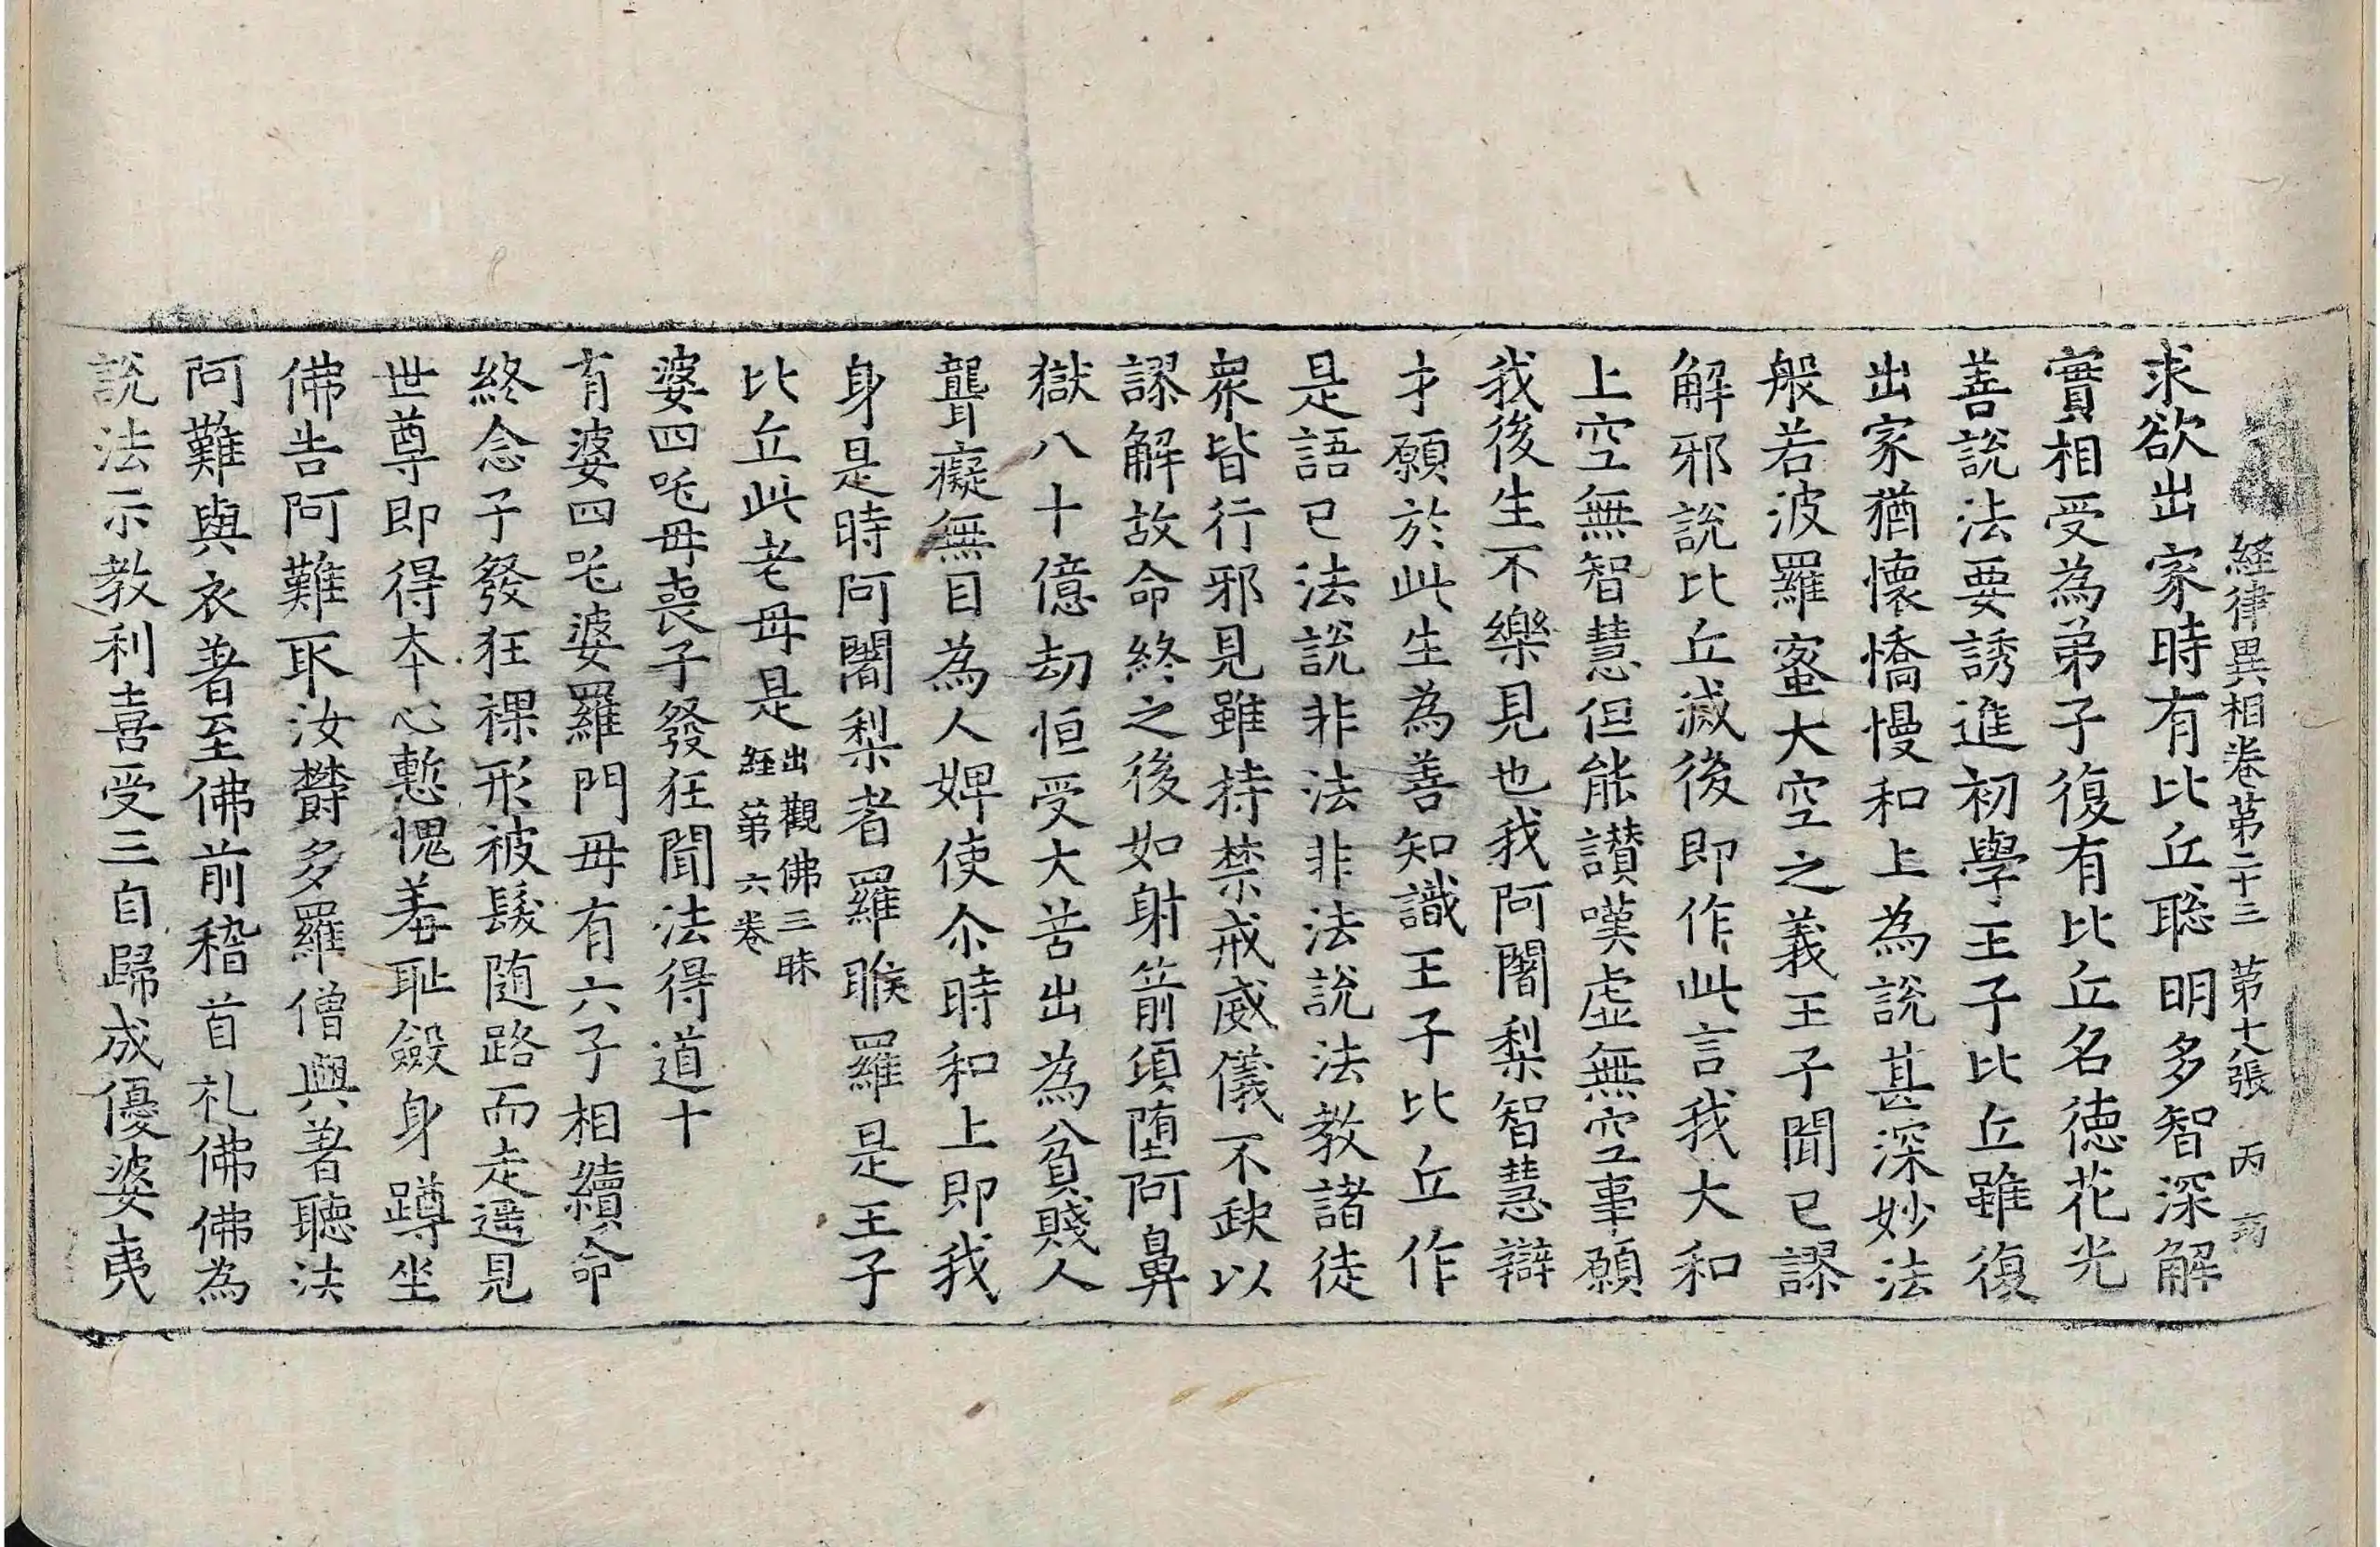 経律異相卷第二十三　第十七張　丙
求欲出家時有比丘聡明多智深解
實相受為弟子復有比丘名德花光
善說法要誘進初學王子比丘雖復
出家猶懷憍慢和上為說甚深妙法
般若波羅蜜大空之義王子聞已謬
解邪說比丘滅後即作此言我大和
上空無智慧但能讃嘆虛無空事願
我後生不樂見也我阿闍梨智慧辯
才願於此生為善知識王子比丘作
是語已法說非法非法說法教諸徒
衆皆行邪見雖持禁戒威儀不缺以
謬解故命終之後如射箭頃墮阿鼻
獄八十億劫恒受大苦出為貧賤人
聾癡無目為人婢使尒時和上即我
身是時阿闍梨者羅睺羅是王子
比丘此老母是出觀佛三昧
経第六卷
婆四吒母喪子發狂聞法得道十
有婆四吒婆羅門母有六子相續命
終念子發狂裸形被髮随路而走遥見
世尊即得本心慙愧羞耻斂身蹲坐
佛告阿難取汝欝多羅僧與著聽法
阿難與衣著至佛前稽首礼佛佛為
說法示教利喜受三自歸成優婆夷